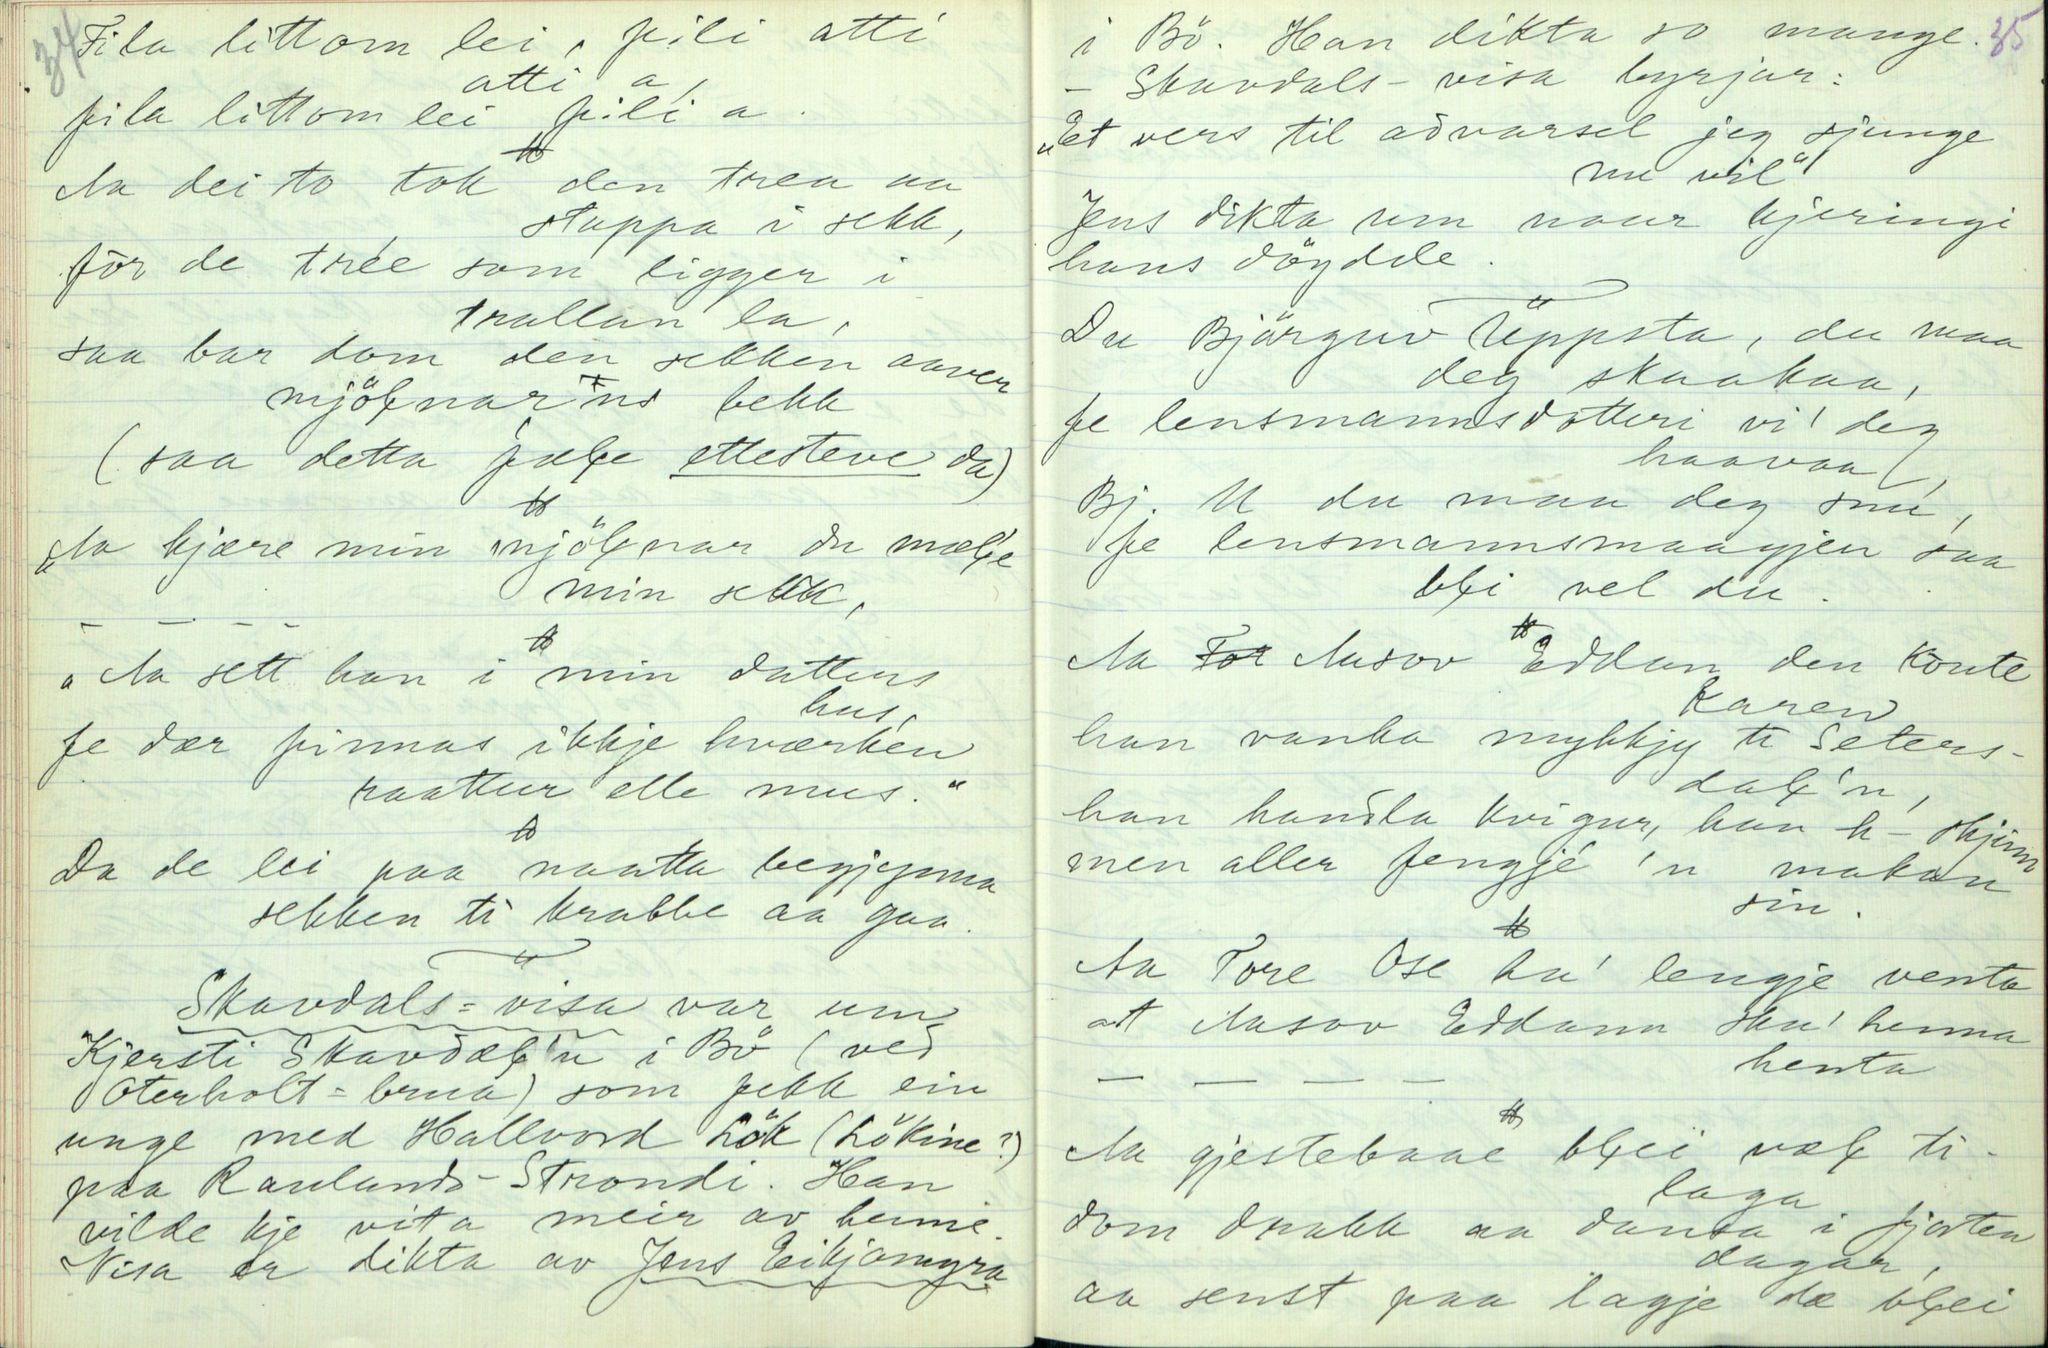 34
Fila littom lei, fili atti
atti a,
fila littom lei fili a.
Aa dei to tok den trea aa
stappa i sekk,
för de trée som ligger i
trallan la,
saa bar dom den sekken aaver
mjölnar'ns bekk
(saa detta fale ettesteve da)
"Aa kjære min mjölnar du male
min sekk,
— — — —
"Aa sett han i min datters
hus,
fe dær finnas ikkje hværken
raattur elle mus."
Da de lei paa naatta begjynna
sekken ti krabbe aa gaa.
Skavdals=visa var um
Kjersti Skavdal'n i Bö (ved
Oterholt=brua) som fekk ein
unge med Hallvord Lök (Lökine?)
paa Raulands-Strondi. Han
vilde kje vita meir av henne.
Visa er dikta av Jens Eikjamyra
35
i Bö. Han dikta so mange.
— Skavdals-visa byrjar:
"Et vers til advarsel jeg sjunge
nu vil"
Jens dikta um naar kjeringi
hans döydde.
Du Bjärguv Uppsta, du maa
deg skaakaa,
fe lensmannsdotteri vi' deg
haavaa,
Bj. U du maa deg snu,
fe lensmannsmaagjen saa
bli vel du.
Aa For Aasov Eddan den koute
Karen
han vanka mykkjy ti Seters-
dal'n,
han handla kvigur, han h— skjinn
men aller fengje 'n makan
sin.
Aa Tore Ose ha' lengje venta
at Aasov Eddann sku' henna
henta
— — — —
Aa gjestebaae blei væl ti-
laga
dom drakk aa dansa i fjorten
dagar,
aa senst paa lagje dæ blei